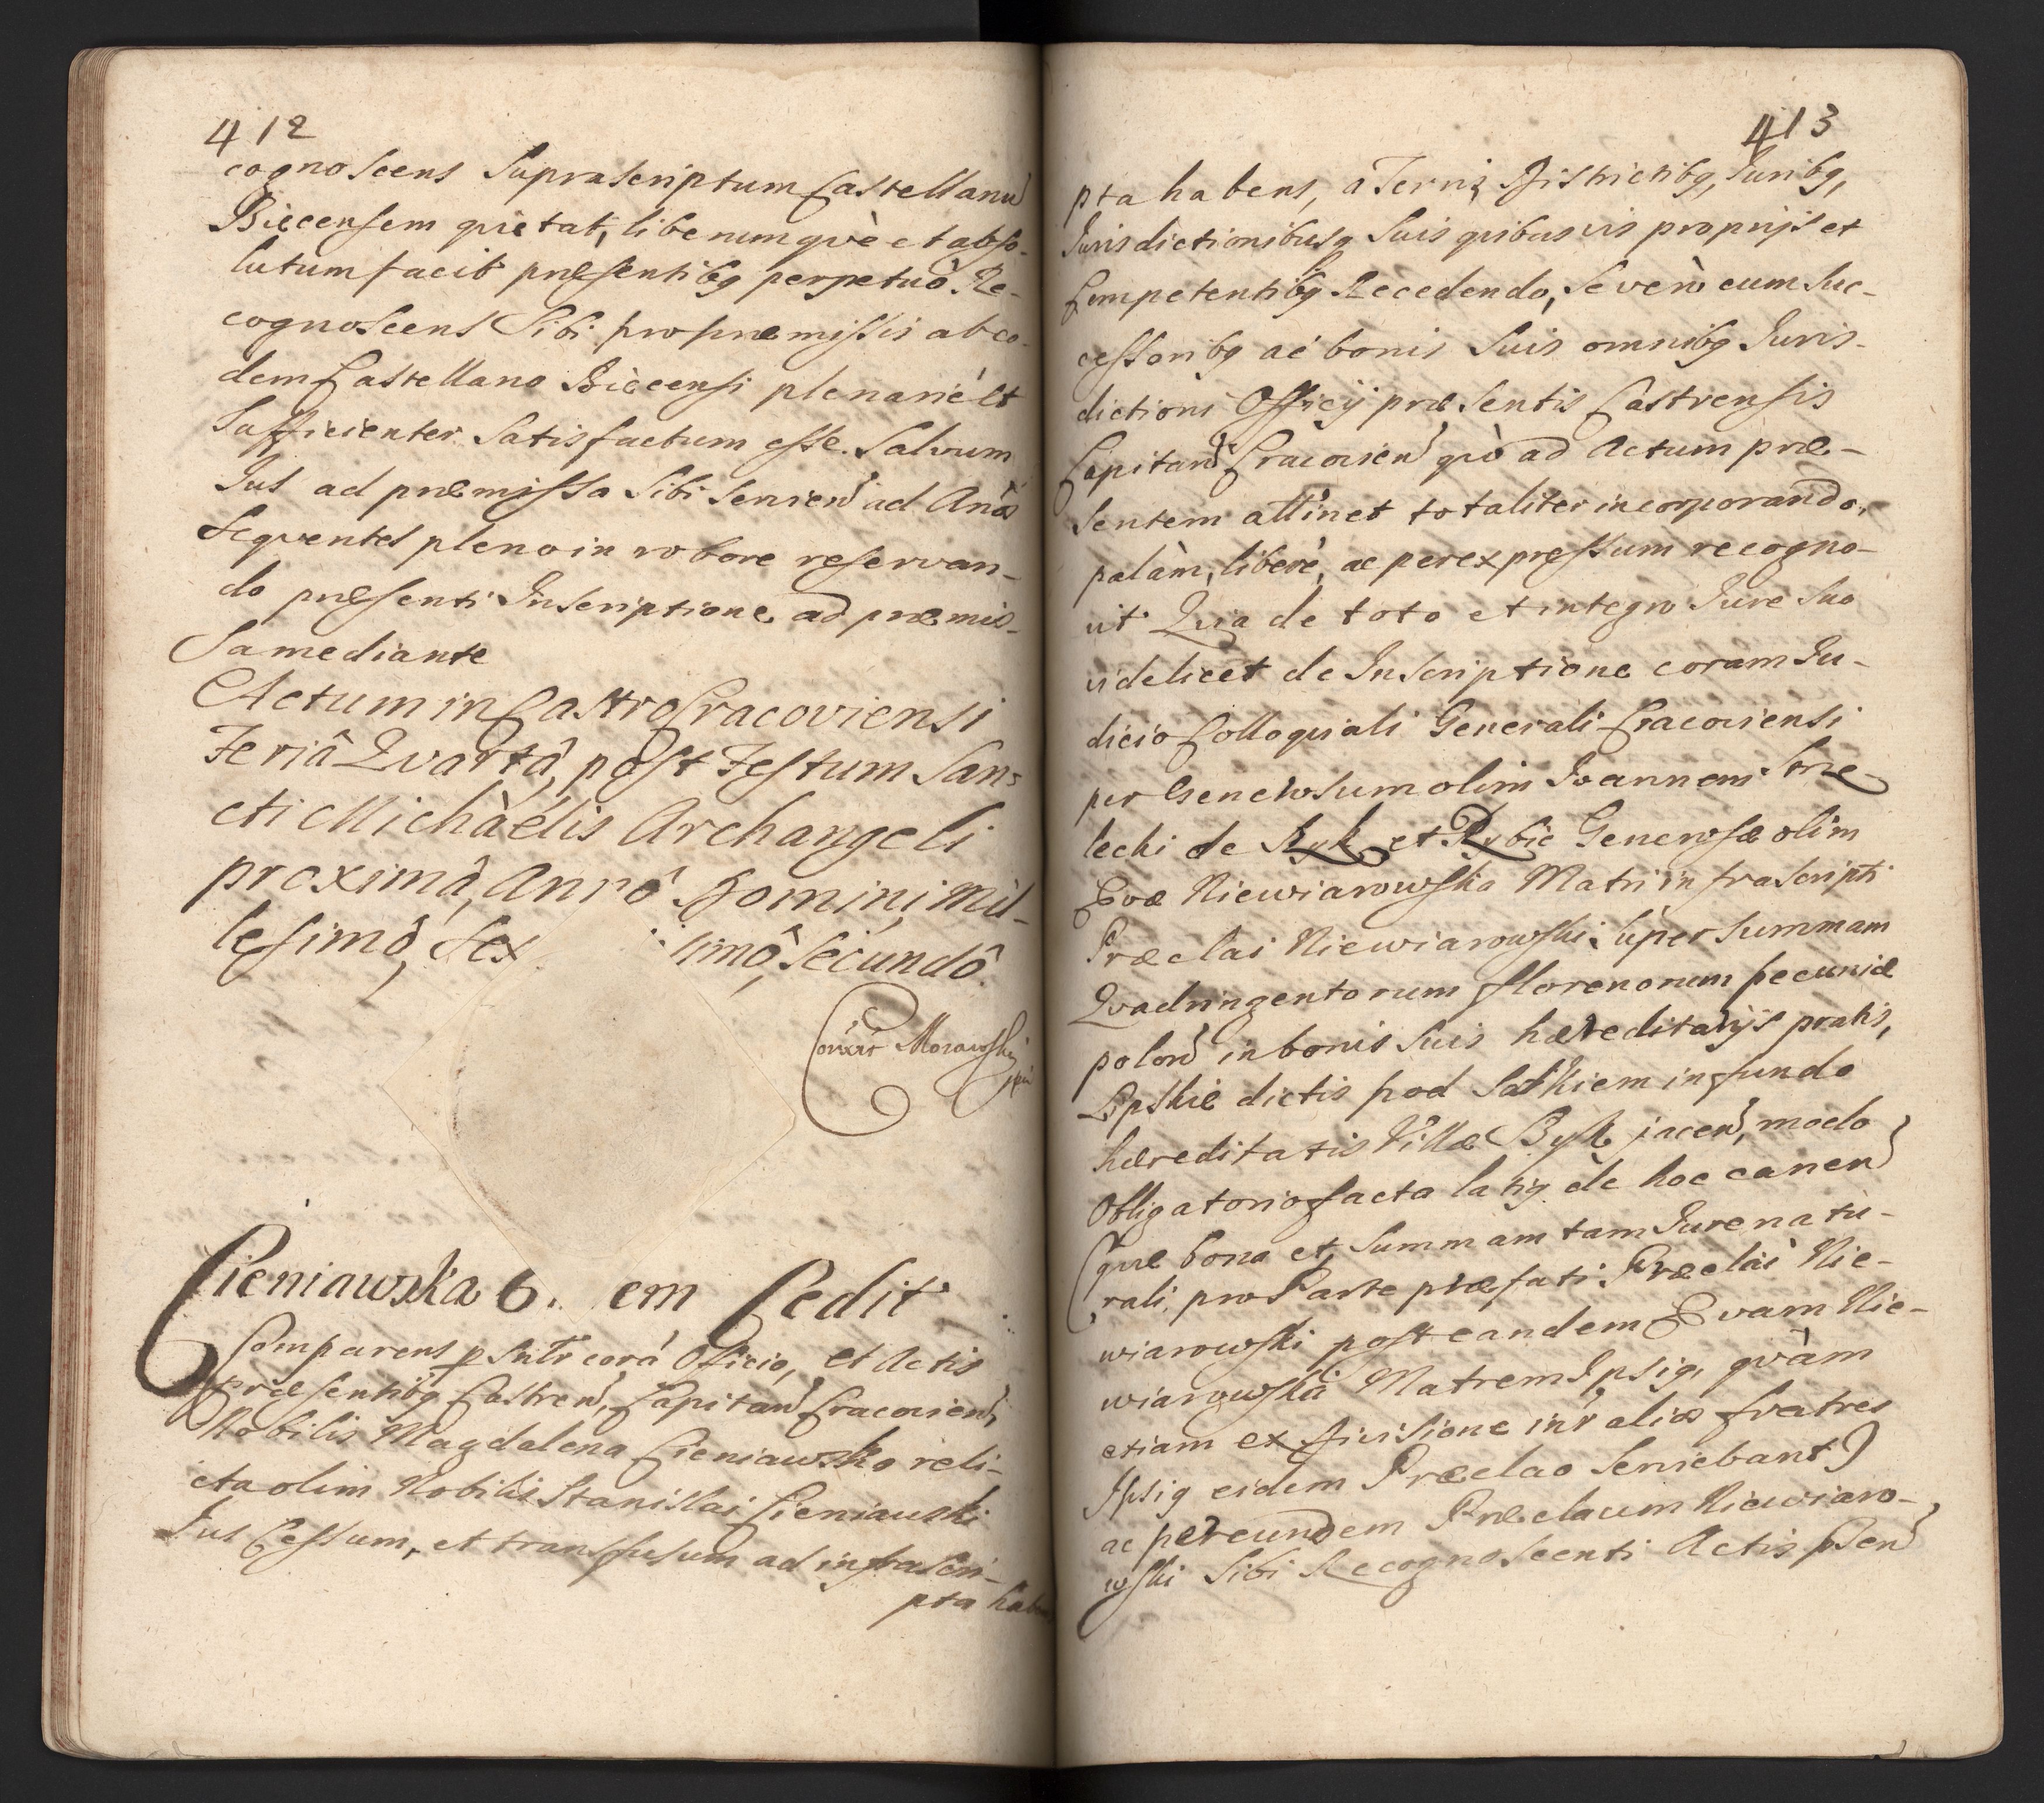 412
cognoscens Suprascriptum Castellanū
Biecensem quietat, liberumquè et abso-
lutum facit præsentibq perpetuò. Re-
cognoscens Sibi pro præmissis ab eo-
dem Castellano Biecensi plenarié et
Sufficienter Satisfactum esse. Salvum
Jus ad præmissa Sibi servien̄ ad An̄os
Sequentes pleno in robore reservan-
do præsenti Inscriptione ad præmis-
sa mediante
Actum in Castro Cracoviensi
Feriâ Qvartâ, post Festum San=
cti Michàélis Archangeli
proximâ, Annô Domini, Mil-
lesimô, Sex simô, Secundô.
Morawski
Cieniawska 6. em Cedit
Comparens psntr corá Officio, et Actis
præsentibq Castren̄, Capitan̄ Cracovien̄,
Nobilis Magdalena Cieniawska reli-
cta olim Nobilis Stanislai Cieniawski
Jus Cessum, et transfusum ad infrascri-
pta habens
413
pta habens, á Terris Districtibq, Juribq,
Jurisdictionibusq Suis quibusvis proprijs et
Competentibq Recedendo, Se verò cum Suc-
cessoribq ac bonis Suis omnibq Juris-
dictioni Officij præsentis Castrensis
Capitan̄ Cracovien̄ quò ad Actum præ-
sentem attinet totaliter incorporando,
palàm, liberè, ac per expressum recogno-
vit Quia de toto et integro Jure Suo
videlicet de Inscriptione coram Ju-
dicio Colloquiali Generali Cracoviensi
per Generosum olim Joannem Strze-
lecki de Byk et Rybie Generosæ olim
Evæ Niewiarowska Matri infrascripti
Præclai Niewiarowski, Super Summam
Qvadringentorum florenorum pecuniæ
polon̄ in bonis Suis hæreditarijs pratis,
Lipskie dictis pod Laskiem in fundo
hæreditatis Villæ Byk jacen̄, modo
Obligatorio facta latiq de hoc canen̄
(quæ bona et Summam tam Jure natu-
rali, pro Parte præfati Præclai Nie-
wiarowski post eandem Evam Nie-
wiarowska Matrem Ipsiq, quàm
etiam ex divisione intr alios fratres
Ipsiq eidem Præclao Serviebant)
ac per eundem Præclaum Niewiaro-
wski Sibi Recognoscenti Actis psen̄